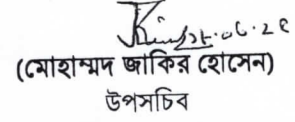 ২৮.০৬.২৫
(মোহাম্মদ জাকির হোসেন)
উপসচিব